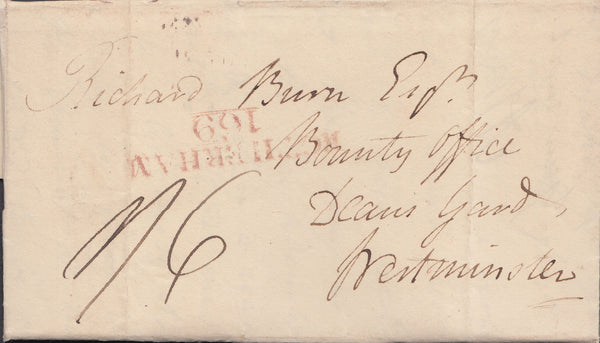 Richard Burn Esqr.
Bounty Office
Deans Yard,
Westminster
169
1/6